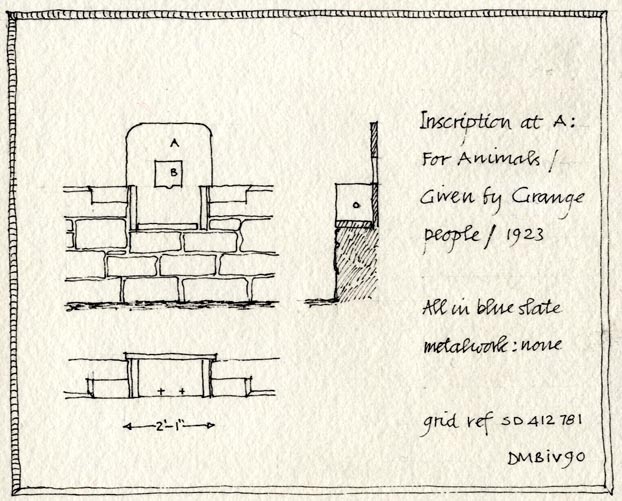 A
B
Inscription at A:
For Animals /
Given by Grange
people / 1923
All in blue slate
metalwork: none
2'-1"
grid ref SD 412 781
DMBiv90